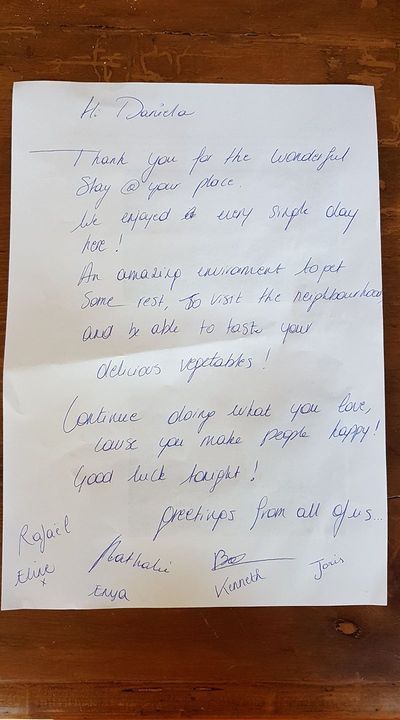 Hi Daniela
Thank you for the wonderful
Stay @ your place.
We enjoyed every single day
here!
An amazing enviroment to get
Some rest, To visit the neighbourhood,
and be able to taste your
delicious vegetables!
Continue doing what you love,
cause you make people happy!
Good luck tonight!
Greetings from all of us...
Rafaël Nathalie Bo Joris
Eline x Enya Kenneth